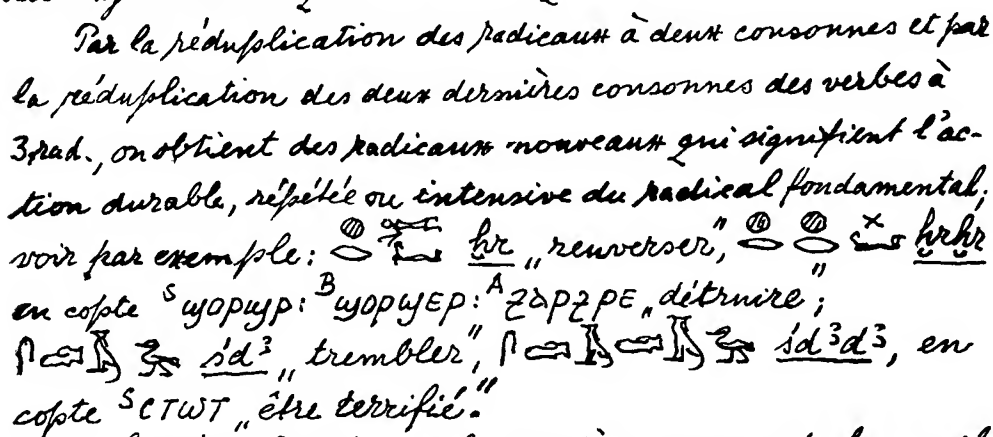 Par la réduplication des radicaux à deux consonnes et par
la réduplication des deux dernières consonnes des verbes à
3 rad., on obtient des radicaux nouveaux qui signifient l'ac-
tion durable, répétée ou intensive du radical fondamental;
voir par exemple: 𓐍𓂋 ḫr „renverser", 𓐍𓂋𓐍𓂋 ḫrḫr
en copte ˢϣⲟⲣϣⲣ: ᴮϣⲟⲣϣⲉⲣ: ᴬⳉⲁⲣⳉⲣⲉ „détruire";
𓋴𓂧𓄿 śd³ „trembler", 𓋴𓂧𓄿𓂧𓄿 śd³d³, en
copte ˢⲥⲧⲱⲧ „être terrifié."